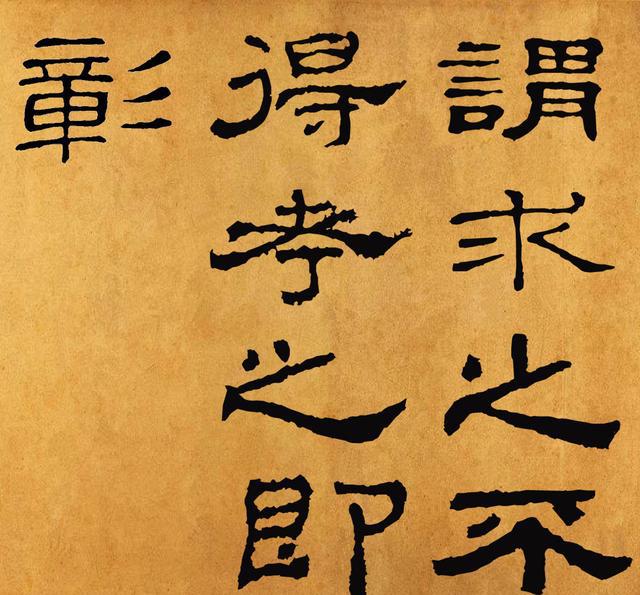 謂求之不
得考之即
彰